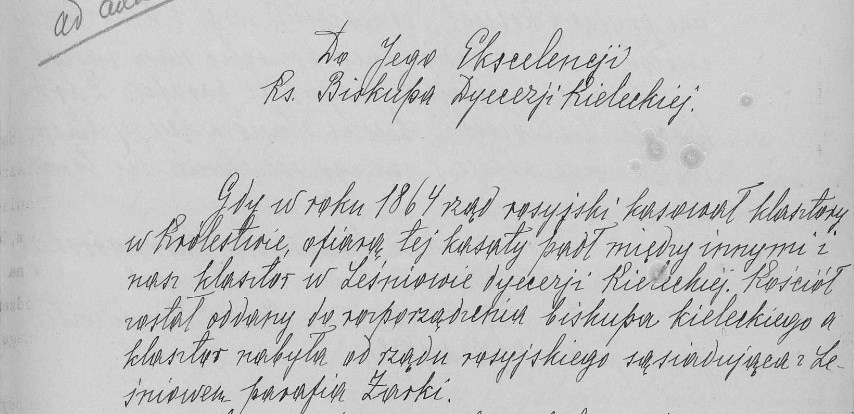 ad
Do Jego Ekscelencji
Ks. Biskupa Dyecezji Kieleckiej.
Gdy w roku 1864 rząd rosyjski kasował klasztory
w Królestwie, ofiarą tej kasaty padł między innymi i
nasz klasztor w Leśniowie dyecezji Kieleckiej. Kościół
został oddany do rozporządzenia biskupa kieleckiego a
klasztor nabyła od rządu rosyjskiego sąsiadująca z Le-
śniowem parafia Żarki.